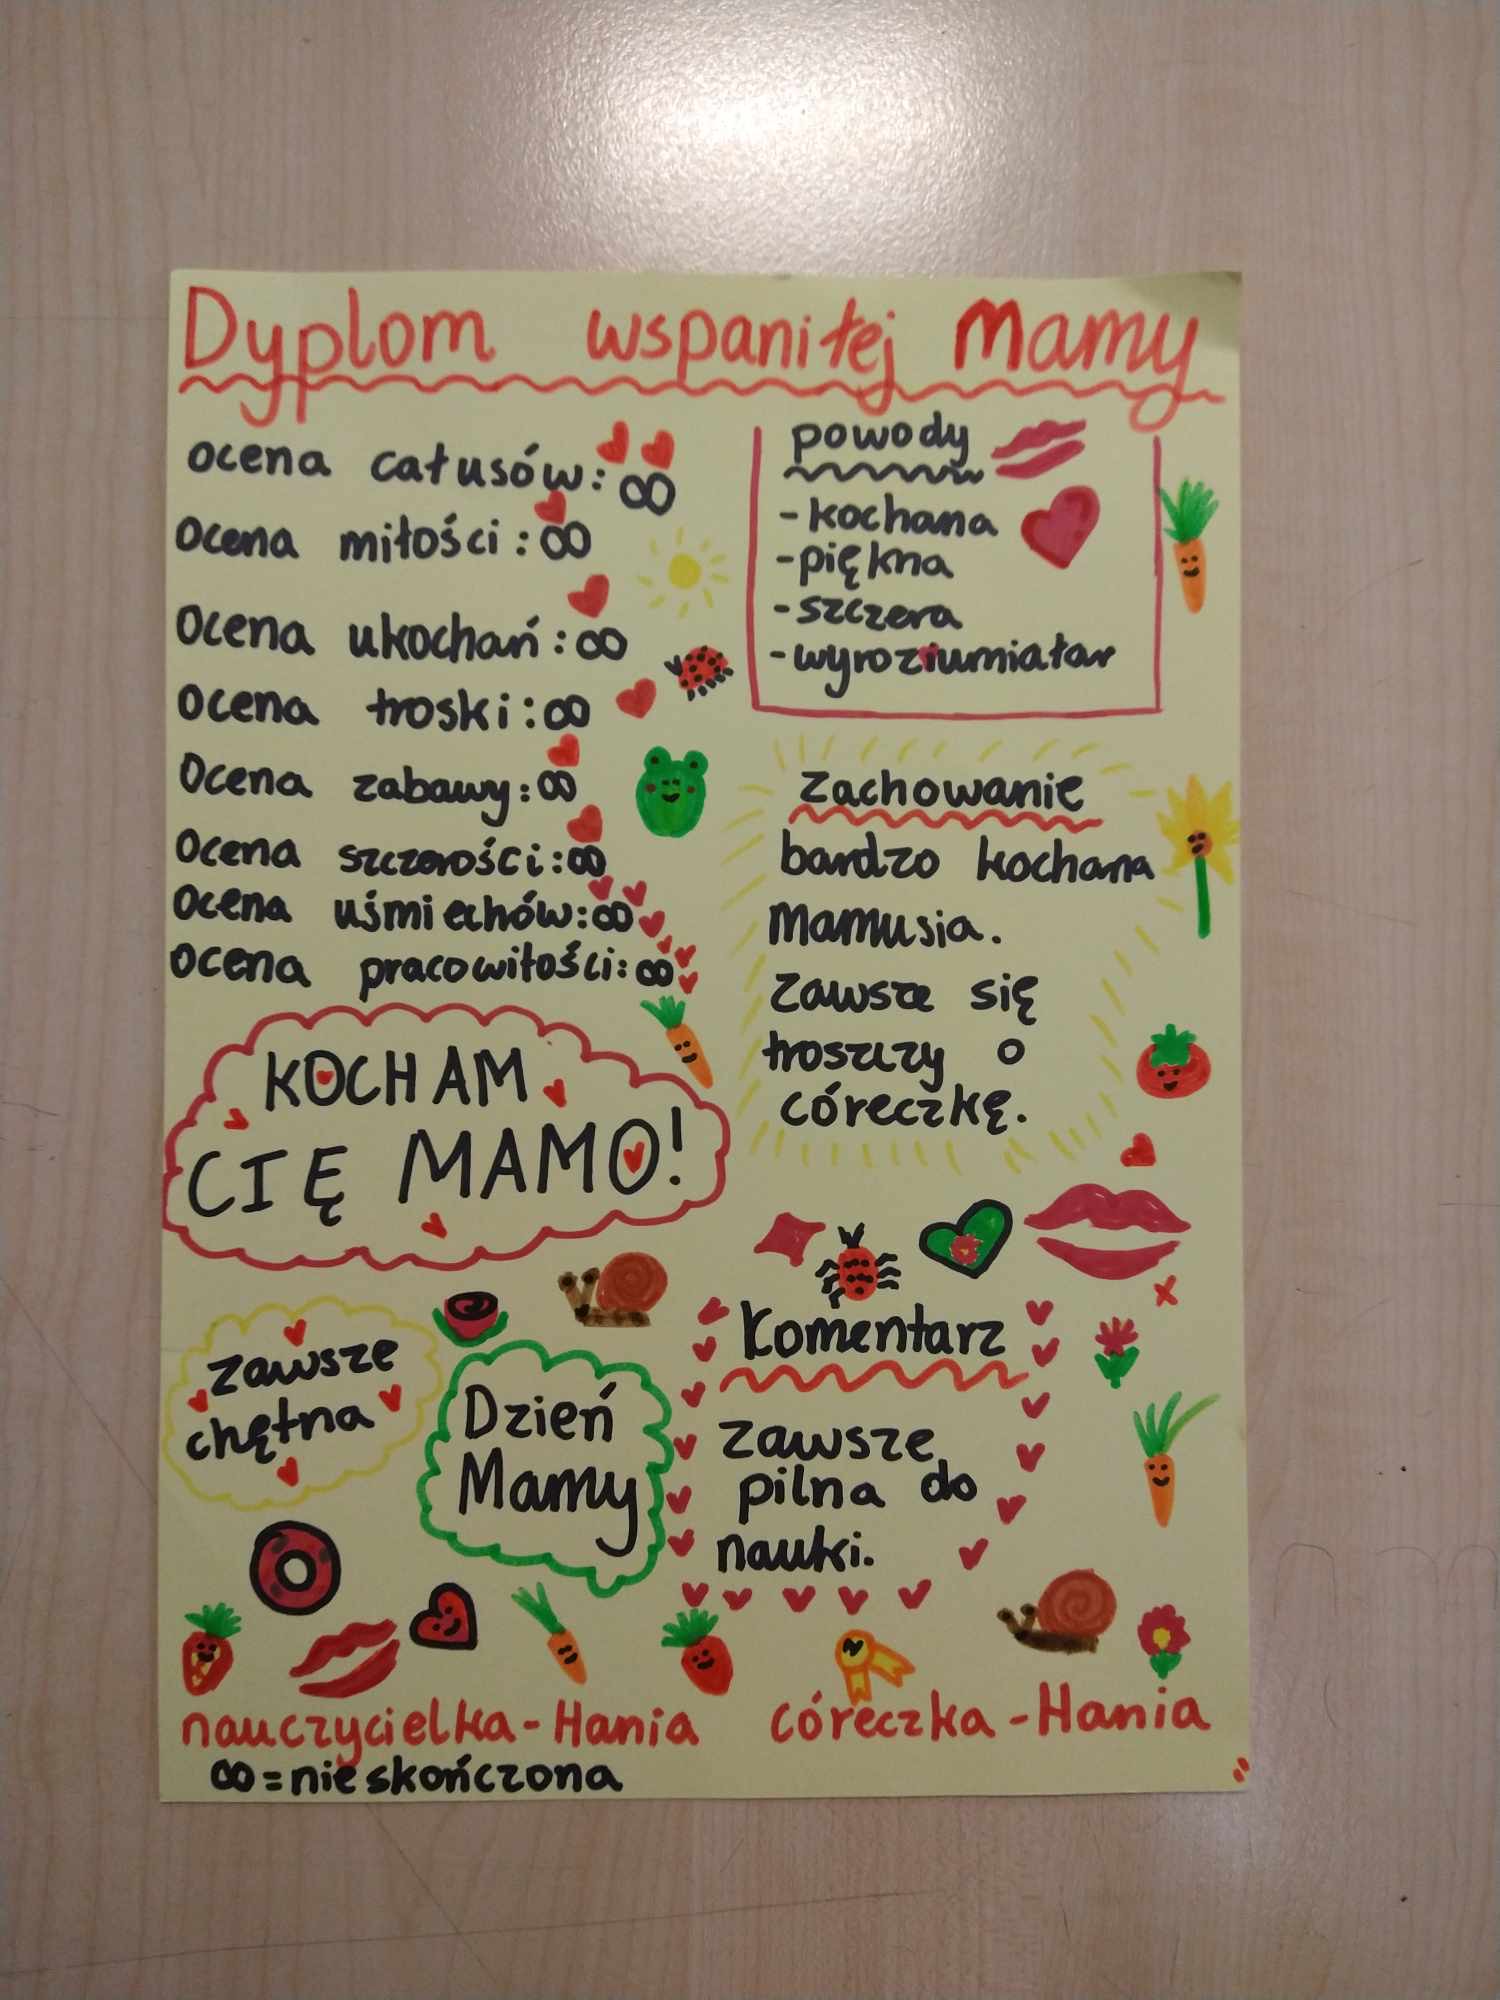 Dyplom wspaniłej Mamy
ocena całusów: ∞
ocena miłości: ∞
ocena ukochań: ∞
ocena troski: ∞
ocena zabawy: ∞
ocena szczerości: ∞
ocena uśmiechów: ∞
ocena pracowitości: ∞
powody
- kochana
- piękna
- szczera
- wyroziumiałar
zachowanie
bardzo kochana
mamusia.
zawsze się
troszczy o
córeczkę.
KOCHAM
CIĘ MAMO!
zawsze
chętna
Dzień
Mamy
Komentarz
zawsze
pilna do
nauki.
nauczycielka - Hania
córeczka - Hania
∞ = nieskończona